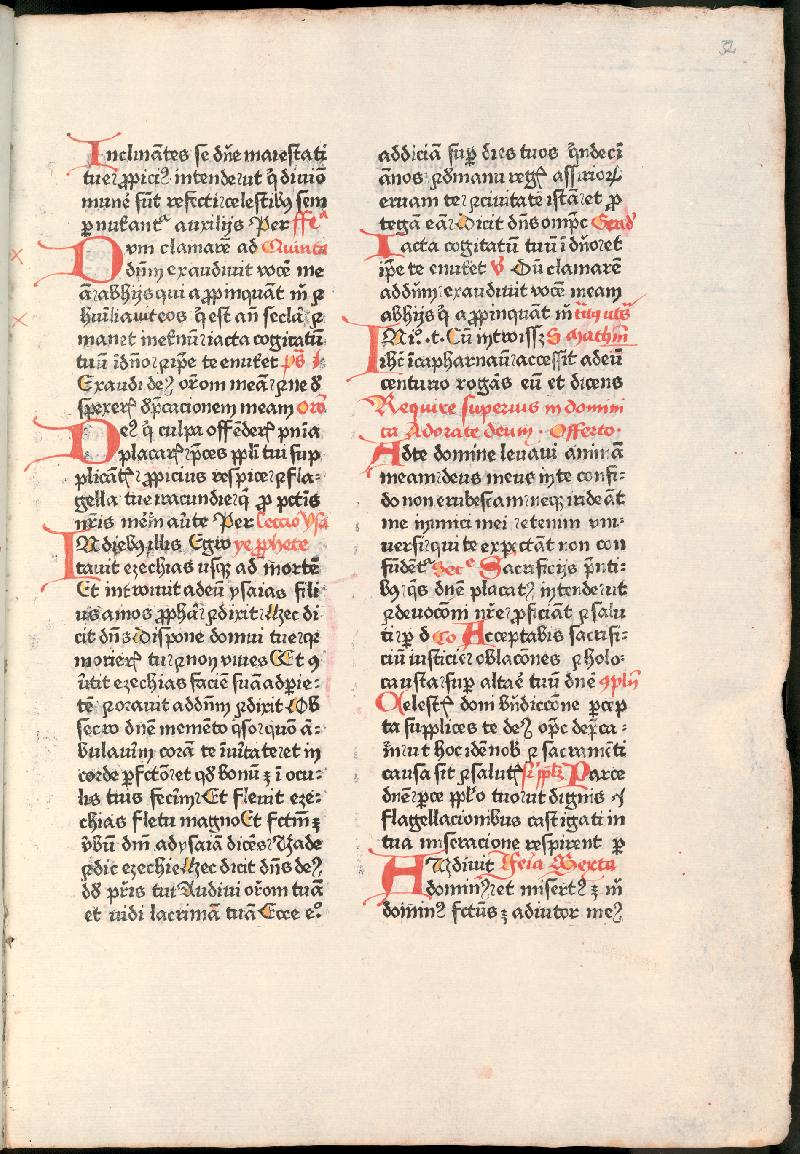 32
Inclinātes se dn̄e maiestati
tue ꝓpiciꝰ intende ut q̄ diuīo
munē sūt refecti celestibꝫ sem
ꝑ nutrant᷑ auxilijs Per ffeᵃ
Dvm clamarē ad Quinta
dn̄m exaudiuit vocē me
ā ab hijs qui aꝓpinquāt m̄ ⁊
huīliauit eos q̄ est an̄ secla ⁊
manet in et̄nū iacta cogitatū
tuū ī dn̄o ⁊ ip̄e te enut̄et ps̄
Exaudi deꝰ or̄om meā ⁊ ne d̄
spexeris dp̄cacionem meam or̄o
Deꝰ q̄ culpa offēderis pn̄ia
placaris p̄ces ppl̄i tui sup
plicātis ꝓpicius respice ⁊ fla-
gella tue iracundie q̄ ꝓ pctīs
nr̄is mēm̄ auerte Per Leccio ysa
In diebꝫ illis Egro ye ꝓphete
tauit ezechias usqꝫ ad mortē
Et introiuit ad eū ysaias fili
us amos ꝓphā ⁊ dixit Hec di
cit dn̄s Dispone domui tue qr
morieris tu ⁊ non viues Et ꝯ
ūtit ezechias faciē suā ad ꝑie-
tē ⁊ orauit ad dn̄m ⁊ dixit Ob
secro dn̄e memēto q̄so quō ā-
bulauim corā te ī uitate et in
corde ꝑfcō et qd̄ bonū ē ī ocu-
lis tuis fecim Et fleuit eze-
chias fletu magno Et fctm̄ ē
v̄bū dm̄ ad ysaiā dicēs Vade
⁊ dic ezechie Hec dicit dn̄s deꝰ
dd̄ pr̄is tui Audiui or̄om tuā
et uidi lacrimā tuā Ecce eᵒ
addiciā suꝑ dies tuos qn̄decī
ānos ⁊ d̄ manu regis assirioꝝ
eruam te ⁊ ciuitatē istā et ꝓ
tegā eā Dicit dn̄s omp̄c Grad̄
Iacta cogitatū tuū ī dn̄o et
ip̄e te enut̄et v̄ Dū clamarē
ad dn̄m exaudiuit vocē meam
ab hijs q̄ aꝓpinquāt m̄
In iᵒ.t. Cū introissꝫ S Mathm̄
ihc̄ ī capharnaū accessit ad eū
centurio rogās eū et dicens
Require superius in domini
ca Adorate deum. Offerto.
Ad te domine leuaui animā
meam deus meus in te confi-
do non erubescam neqꝫ irideāt
me inimici mei etenim vni-
uersi qui te expectāt non con
fūdent᷑ Secᵉ Sacrificijs p̄nti-
bꝫ q̄s dn̄e placatꝰ intende ut
⁊ deuocōni nr̄e ꝓficiāt ⁊ salu
ti ꝑ d Co Acceptabis sacrifi-
ciū iusticie oblacōnes ⁊ holo-
causta suꝑ altaē tuū dn̄e ꝯpln̄
Celestis doni bn̄diccōne ꝑcep
ta supplices te deꝰ op̄c dep̄ca-
mr ut hoc idē nob ⁊ sacramēti
causa sit ⁊ salutis sr̄ ppl̄ Parce
dn̄e ꝑce ppl̄o tuo ut dignis
flagellacionibus castigati in
tua miseracione respirent ꝑ
Avdiuit Feria Sexta
dominꝰ et misertꝰ ē m̄
dominꝰ fctūs ē adiutor meꝰ